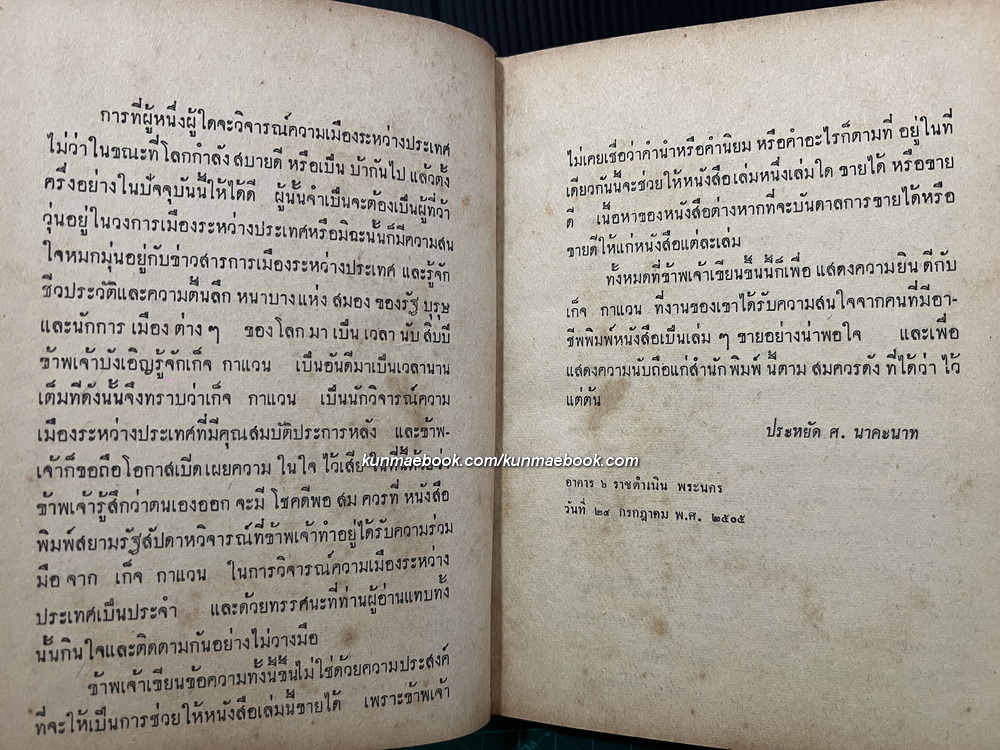 การที่ผู้หนึ่งผู้ใดจะวิจารณ์ความเมืองระหว่างประเทศ
ไม่ว่าในขณะที่โลกกำลังสบายดี หรือเป็น บ้ากันไป แล้วตั้ง
ครึ่งอย่างในปัจจุบันนี้ให้ได้ดี ผู้นั้นจำเป็นจะต้องเป็นผู้ที่ว้า
วุ่นอยู่ในวงการเมืองระหว่างประเทศหรือมิฉะนั้นก็มีความสน
ใจหมกมุ่นอยู่กับข่าวสารการเมืองระหว่างประเทศ และรู้จัก
ชีวประวัติและความตื้นลึก หนาบางแห่ง สมอง ของรัฐ บุรุษ
และนักการ เมือง ต่าง ๆ ของ โลก มา เป็น เวลา นับ สิบปี
ข้าพเจ้าบังเอิญรู้จักเก็จ กาแวน เป็นอันดีมาเป็นเวลานาน
เต็มทีดังนั้นจึงทราบว่าเก็จ กาแวน เป็นนักวิจารณ์ความ
เมืองระหว่างประเทศที่มีคุณสมบัติประการหลัง และข้าพ-
เจ้าก็ขอถือโอกาสเปิดเผยความ ในใจ ไว้เสีย
kunmaebook.com/kunmaebook.com
ข้าพเจ้ารู้สึกว่าตนเองออก จะมี โชคดีพอ สม ควรที่ หนังสือ
พิมพ์สยามรัฐสัปดาหวิจารณ์ที่ข้าพเจ้าทำอยู่ได้รับความร่วม
มือ จาก เก็จ กาแวน ในการวิจารณ์ความเมืองระหว่าง
ประเทศเป็นประจำ และด้วยทรรศนะที่ท่านผู้อ่านแทบทั้ง
นั้นกินใจและติดตามกันอย่างไม่วางมือ
ข้าพเจ้าเขียนข้อความทั้งนี้ขึ้นไม่ใช่ด้วยความประสงค์
ที่จะให้เป็นการช่วยให้หนังสือเล่มนี้ขายได้ เพราะข้าพเจ้า
ไม่เคยเชื่อว่าคำนำหรือคำนิยม หรือคำอะไรก็ตามที่ อยู่ในที่
เดียวกันนี้จะช่วยให้หนังสือเล่มหนึ่งเล่มใด ขายได้ หรือขาย
ดี เนื้อหาของหนังสือต่างหากที่จะบันดาลการขายได้หรือ
ขายดีให้แก่หนังสือแต่ละเล่ม
ทั้งหมดที่ข้าพเจ้าเขียนขึ้นนี้ก็เพื่อ แสดงความยิน ดีกับ
เก็จ กาแวน ที่งานของเขาได้รับความสนใจจากคนที่มีอา-
ชีพพิมพ์หนังสือเป็นเล่ม ๆ ขายอย่างน่าพอใจ และเพื่อ
แสดงความนับถือแก่สำนักพิมพ์ นี้ตาม สมควรดัง ที่ได้ว่า ไว้
แต่ต้น
ประหยัด ศ. นาคะนาท
อาคาร ๖ ราชดำเนิน พระนคร
วันที่ ๒๔ กรกฎาคม พ.ศ. ๒๕๐๕